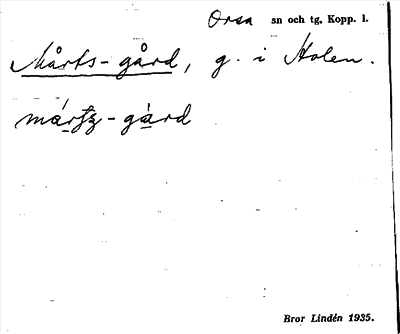 Orsa sn och tg. Kopp. l.
Mårts-gård, g. i Holen.
mártz-gàrd
Bror Lindén 1935.